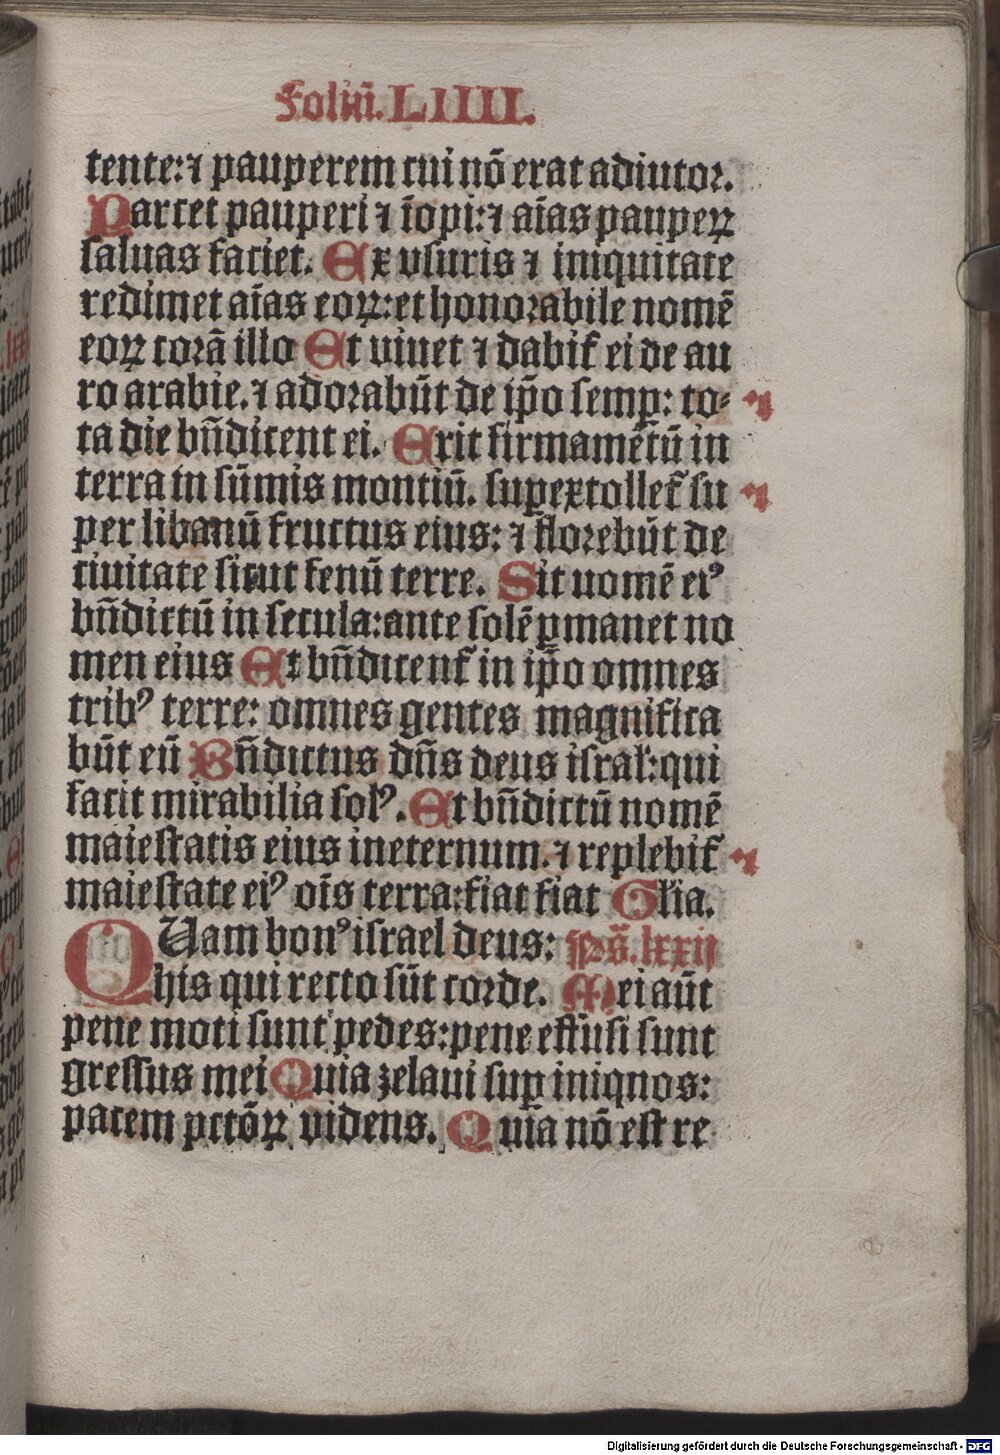 Foliũ. LIIII.
tente: ⁊ pauperem cui nõ erat adiutor.
Parcet pauperi ⁊ ĩopi: ⁊ aĩas pauperꝝ
saluas faciet. Ex vsuris ⁊ iniquitate
redimet aĩas eoꝝ: et honorabile nomẽ
eoꝝ corã illo Et viuet ⁊ dabit᷑ ei de au
ro arabie. ⁊ adorabũt de ip̃o semꝑ: to⸗
ta die bñdicent ei. Erit firmamẽtũ in
terra in sũmis montiũ. supextollet᷑ su
per libanũ fructus eius: ⁊ florebũt de
ciuitate sicut fenũ terre. Sit nomẽ eiꝰ
bñdictũ in secula: ante solẽ ꝑmanet no
men eius Et bñdicent᷑ in ip̃o omnes
tribꝰ terre: omnes gentes magnifica
bũt eũ Bñdictus dñs deus israł: qui
facit mirabilia solꝰ. Et bñdictũ nomẽ
maiestatis eius ineternum. ⁊ replebit᷑
maiestate eiꝰ oĩs terra: fiat fiat Gl̃ia.
QUam bonꝰ israel deus: Ps̃. lxxij
his qui recto sũt corde. Mei aũt
pene moti sunt pedes: pene effusi sunt
gressus mei Quia zelaui suꝑ iniquos:
pacem pctõꝝ videns. Quia nõ est re
Digitalisierung gefördert durch die Deutsche Forschungsgemeinschaft - DFG